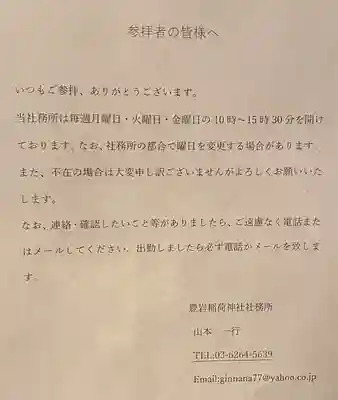 参拝者の皆様へ
いつもご参拝、ありがとうございます。
当社務所は毎週月曜日・火曜日・金曜日の10時～15時30分を開け
ております。なお、社務所の都合で曜日を変更する場合があります。
また、不在の場合は大変申し訳ございませんがよろしくお願いいた
します。
なお、連絡・確認したいこと等がありましたら、ご遠慮なく電話また
はメールしてください。出勤しましたら必ず電話かメールを致しま
す。
豊岩稲荷神社社務所
山本 一行
TEL:03-6264-5639
Email:ginnana77@yahoo.co.jp